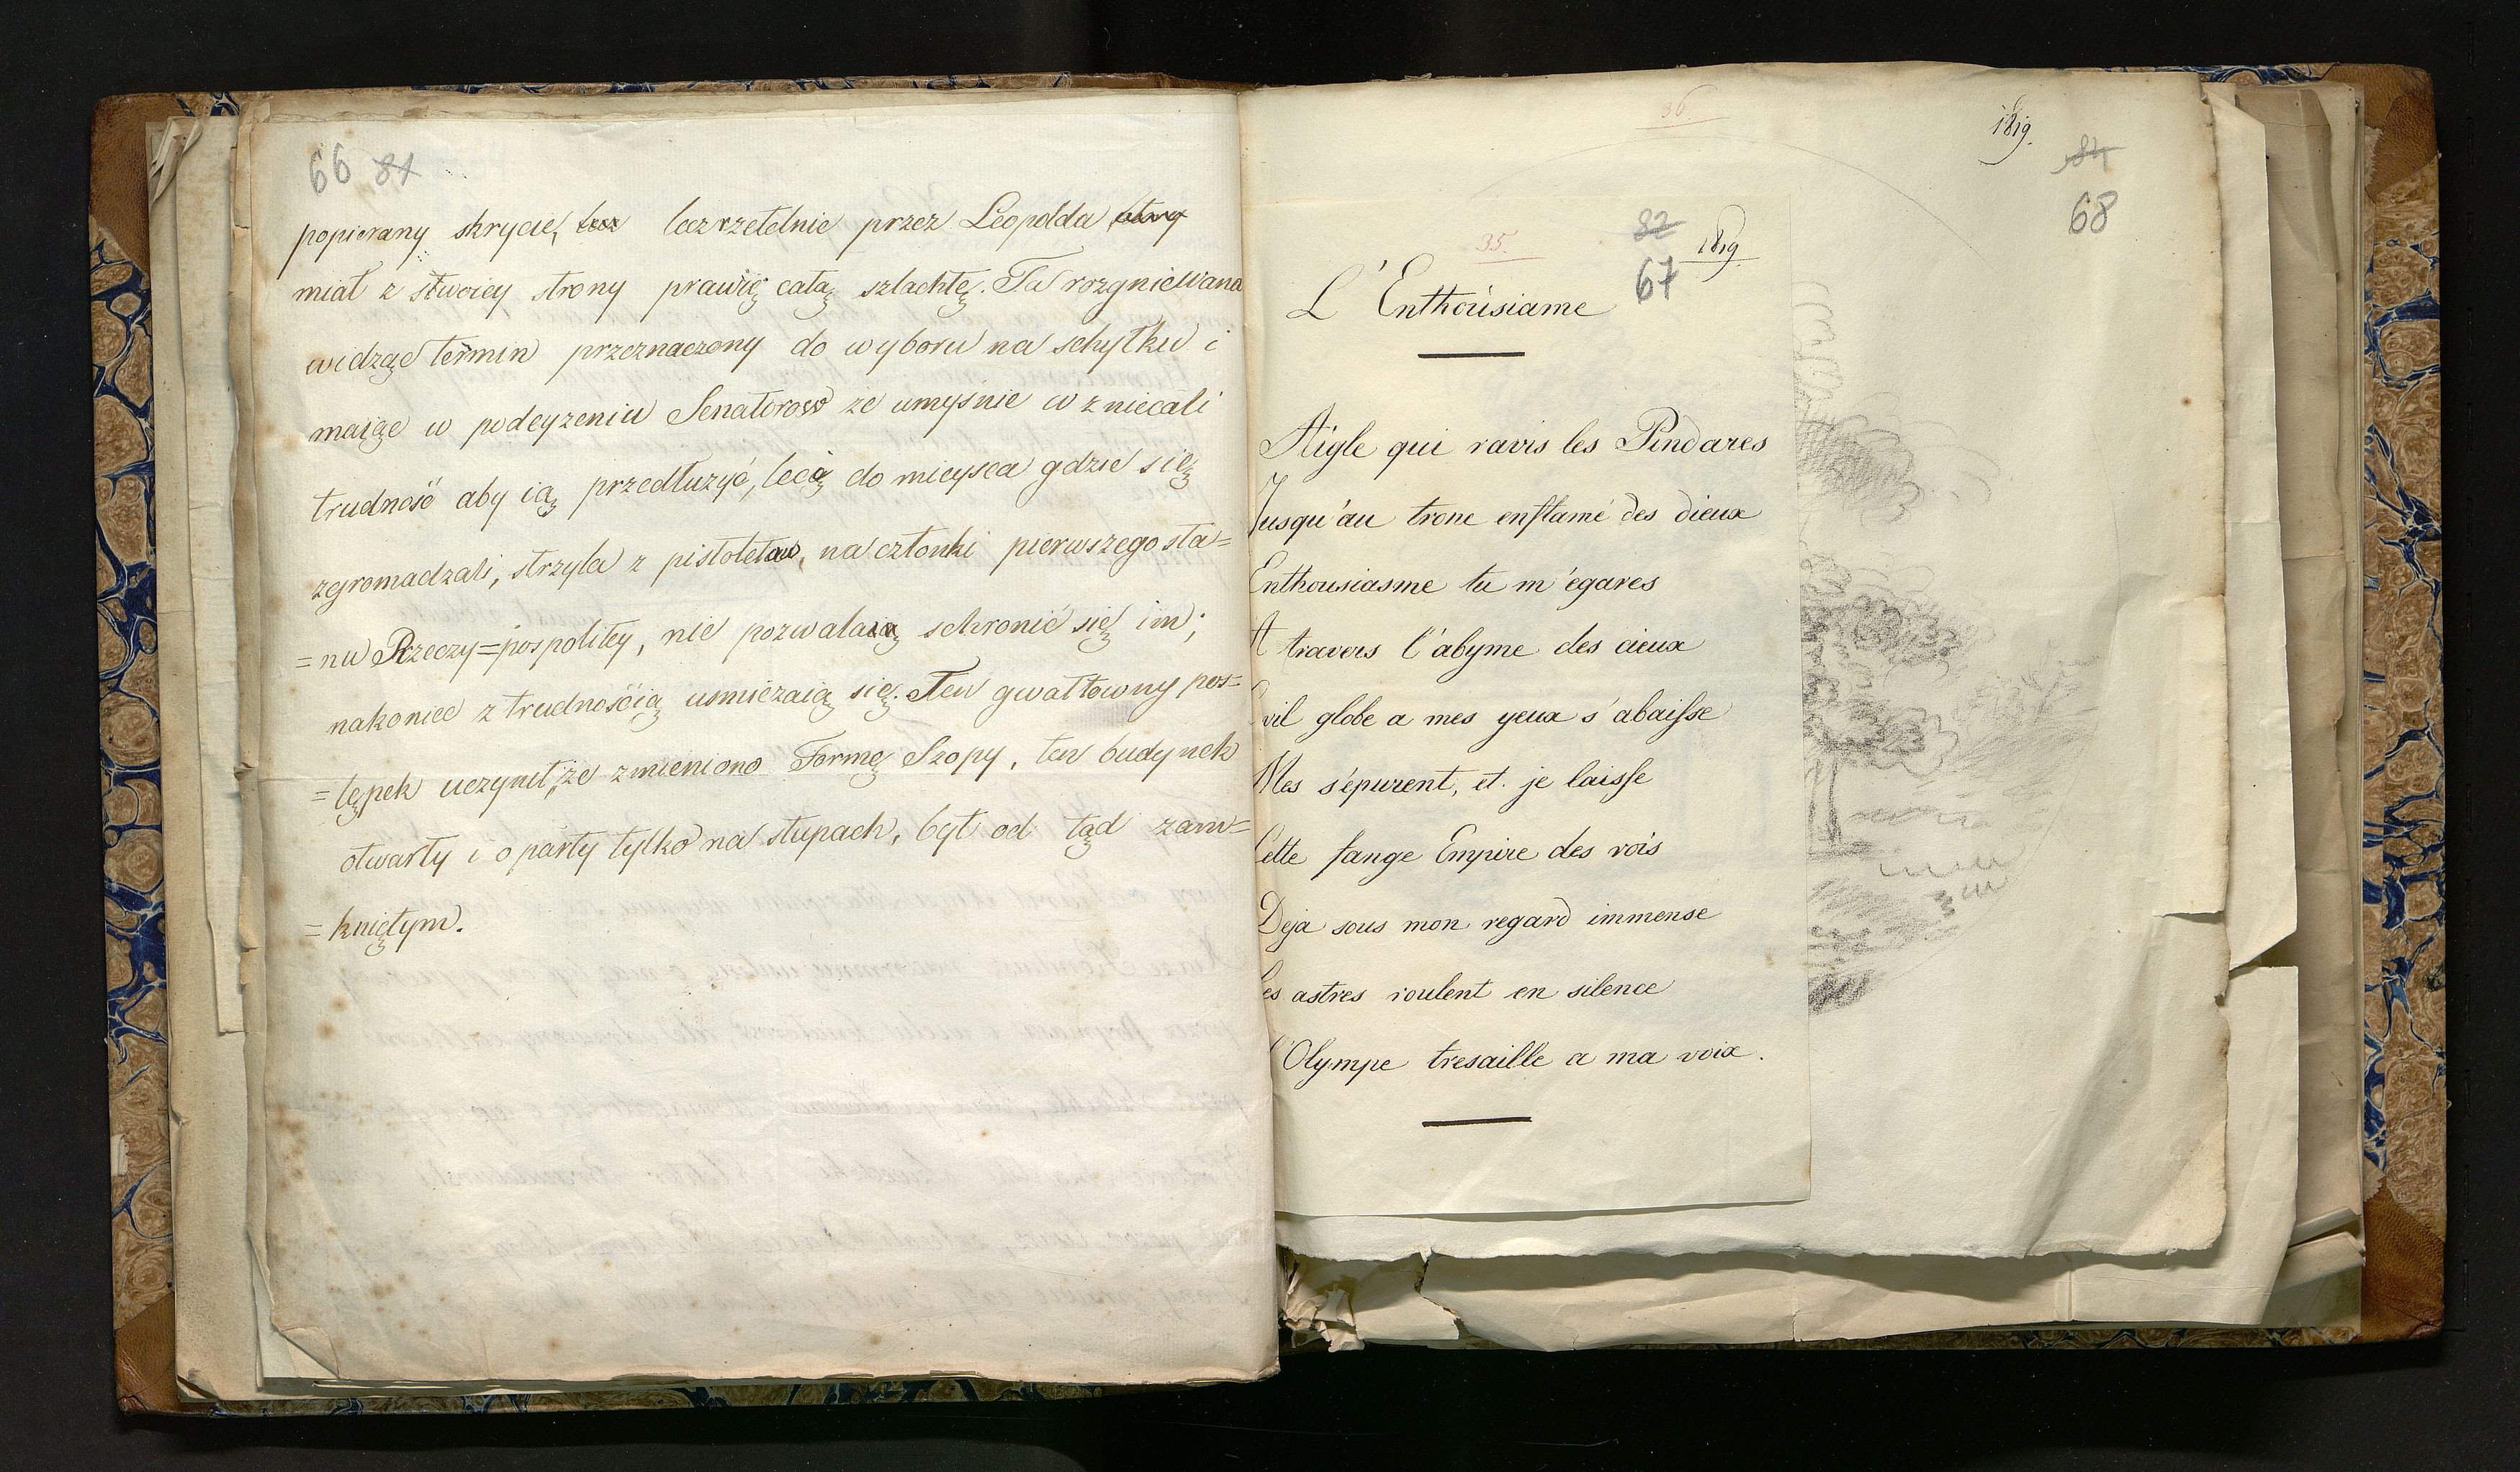 66 81
popierany skrycie, lecz lecz rzetelnie przez Leopolda
miał z stwoiey strony prawię całą szlachtę. Ta rozgniewana
widząc termin przeznaczony do wyboru na schyłku i
maiąc w podeyzeniu Senatorow ze umyśnie wzniecali
trudność aby ią przedłuzyć, lecą do mieysca gdzie się
zgromadzali, strzyla z pistoletow, na członki pierwszego sta=
=nu Rzeczy=pospolitey, nie pozwalaią schronić się im;
nakoniec z trudnośćią usmiezaią się. Ten gwałtowny pos=
=tępek uczynił, ze zmieniono Formę Szopy, ten budynek
otwarty i oparty tylko na słupach, był od tąd zam=
=kniętym.
36.
1819.
84
68
82
35.
1819
67
L'Enthousiame
Aigle qui ravis les Pindares
Jusqu'au trone enflamé des dieux
Enthousiasme tu m'égares
A travers l'abyme des cieux
vil globe a mes yeux s'abaisse
Mes s'épurent, et je laisse
Cette fange Empire des rois
Deja sous mon regard immense
Les astres roulent en silence
L'Olympe tresaille a ma voix.